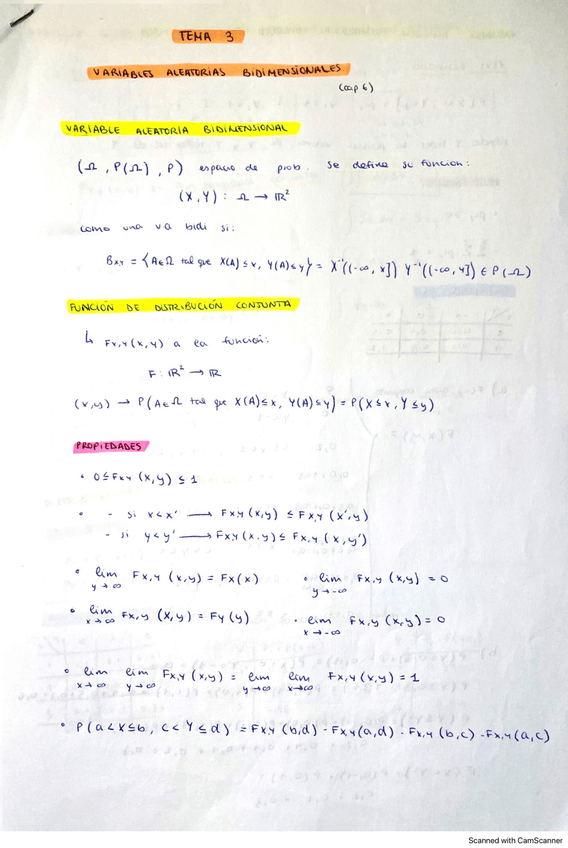 TEMA 3
VARIABLES ALEATORIAS BIDIMENSIONALES
(cap 6)
VARIABLE ALEATORIA BIDIMENSIONAL
(Ω, P(Ω), P) espacio de prob. Se define su funcion:
(X, Y) : Ω → ℝ²
como una va bidi si:
Bx,y = {A∈Ω tal que X(A)≤x, Y(A)≤y} = X⁻¹((-∞, x]) Y⁻¹((-∞, y]) ∈ P(Ω)
FUNCIÓN DE DISTRIBUCIÓN CONJUNTA
↳ Fx,y (x,y) a la función:
F: ℝ² → ℝ
(x,y) → P(A∈Ω tal que X(A)≤x, Y(A)≤y) = P(X≤x, Y≤y)
PROPIEDADES
• 0≤Fx,y (x,y) ≤ 1
• - si x<x' → Fx,y (x,y) ≤ Fx,y (x',y)
- si y<y' → Fx,y (x,y) ≤ Fx,y (x,y')
• lim y→∞ Fx,y (x,y) = Fx(x) • lim y→-∞ Fx,y (x,y) = 0
• lim x→∞ Fx,y (x,y) = Fy(y) • lim x→-∞ Fx,y (x,y) = 0
• lim x→∞ lim y→∞ Fx,y (x,y) = lim y→∞ lim x→∞ Fx,y (x,y) = 1
• P(a<X≤b, c<Y≤d) = Fx,y (b,d) - Fx,y (a,d) - Fx,y (b,c) - Fx,y (a,c)
Scanned with CamScanner